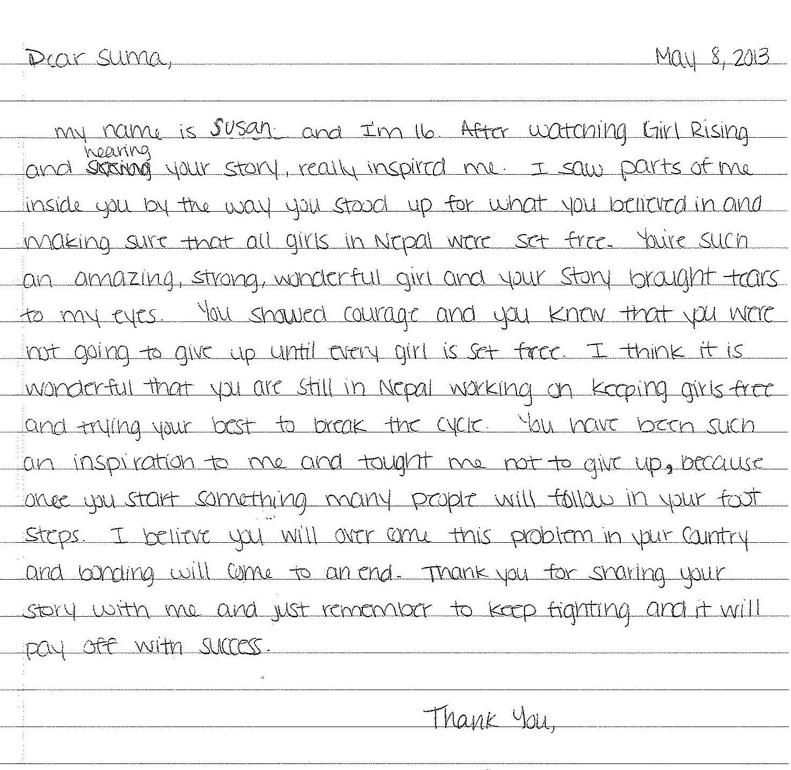 Dear Suma,    May 8, 2013
my name is Susan and I'm 16. After watching Girl Rising
hearing
and your story, really inspired me. I saw parts of me
inside you by the way you stood up for what you believed in and
making sure that all girls in Nepal were set free. You're such
an amazing, strong, wonderful girl and your story brought tears
to my eyes. You showed courage and you knew that you were
not going to give up until every girl is set free. I think it is
wonderful that you are still in Nepal working on keeping girls free
and trying your best to break the cycle. You have been such
an inspiration to me and tought me not to give up, because
once you start something many people will follow in your foot
steps. I believe you will over come this problem in your Country
and bonding will come to an end. Thank you for sharing your
story with me and just remember to keep fighting and it will
pay off with success.
Thank You,